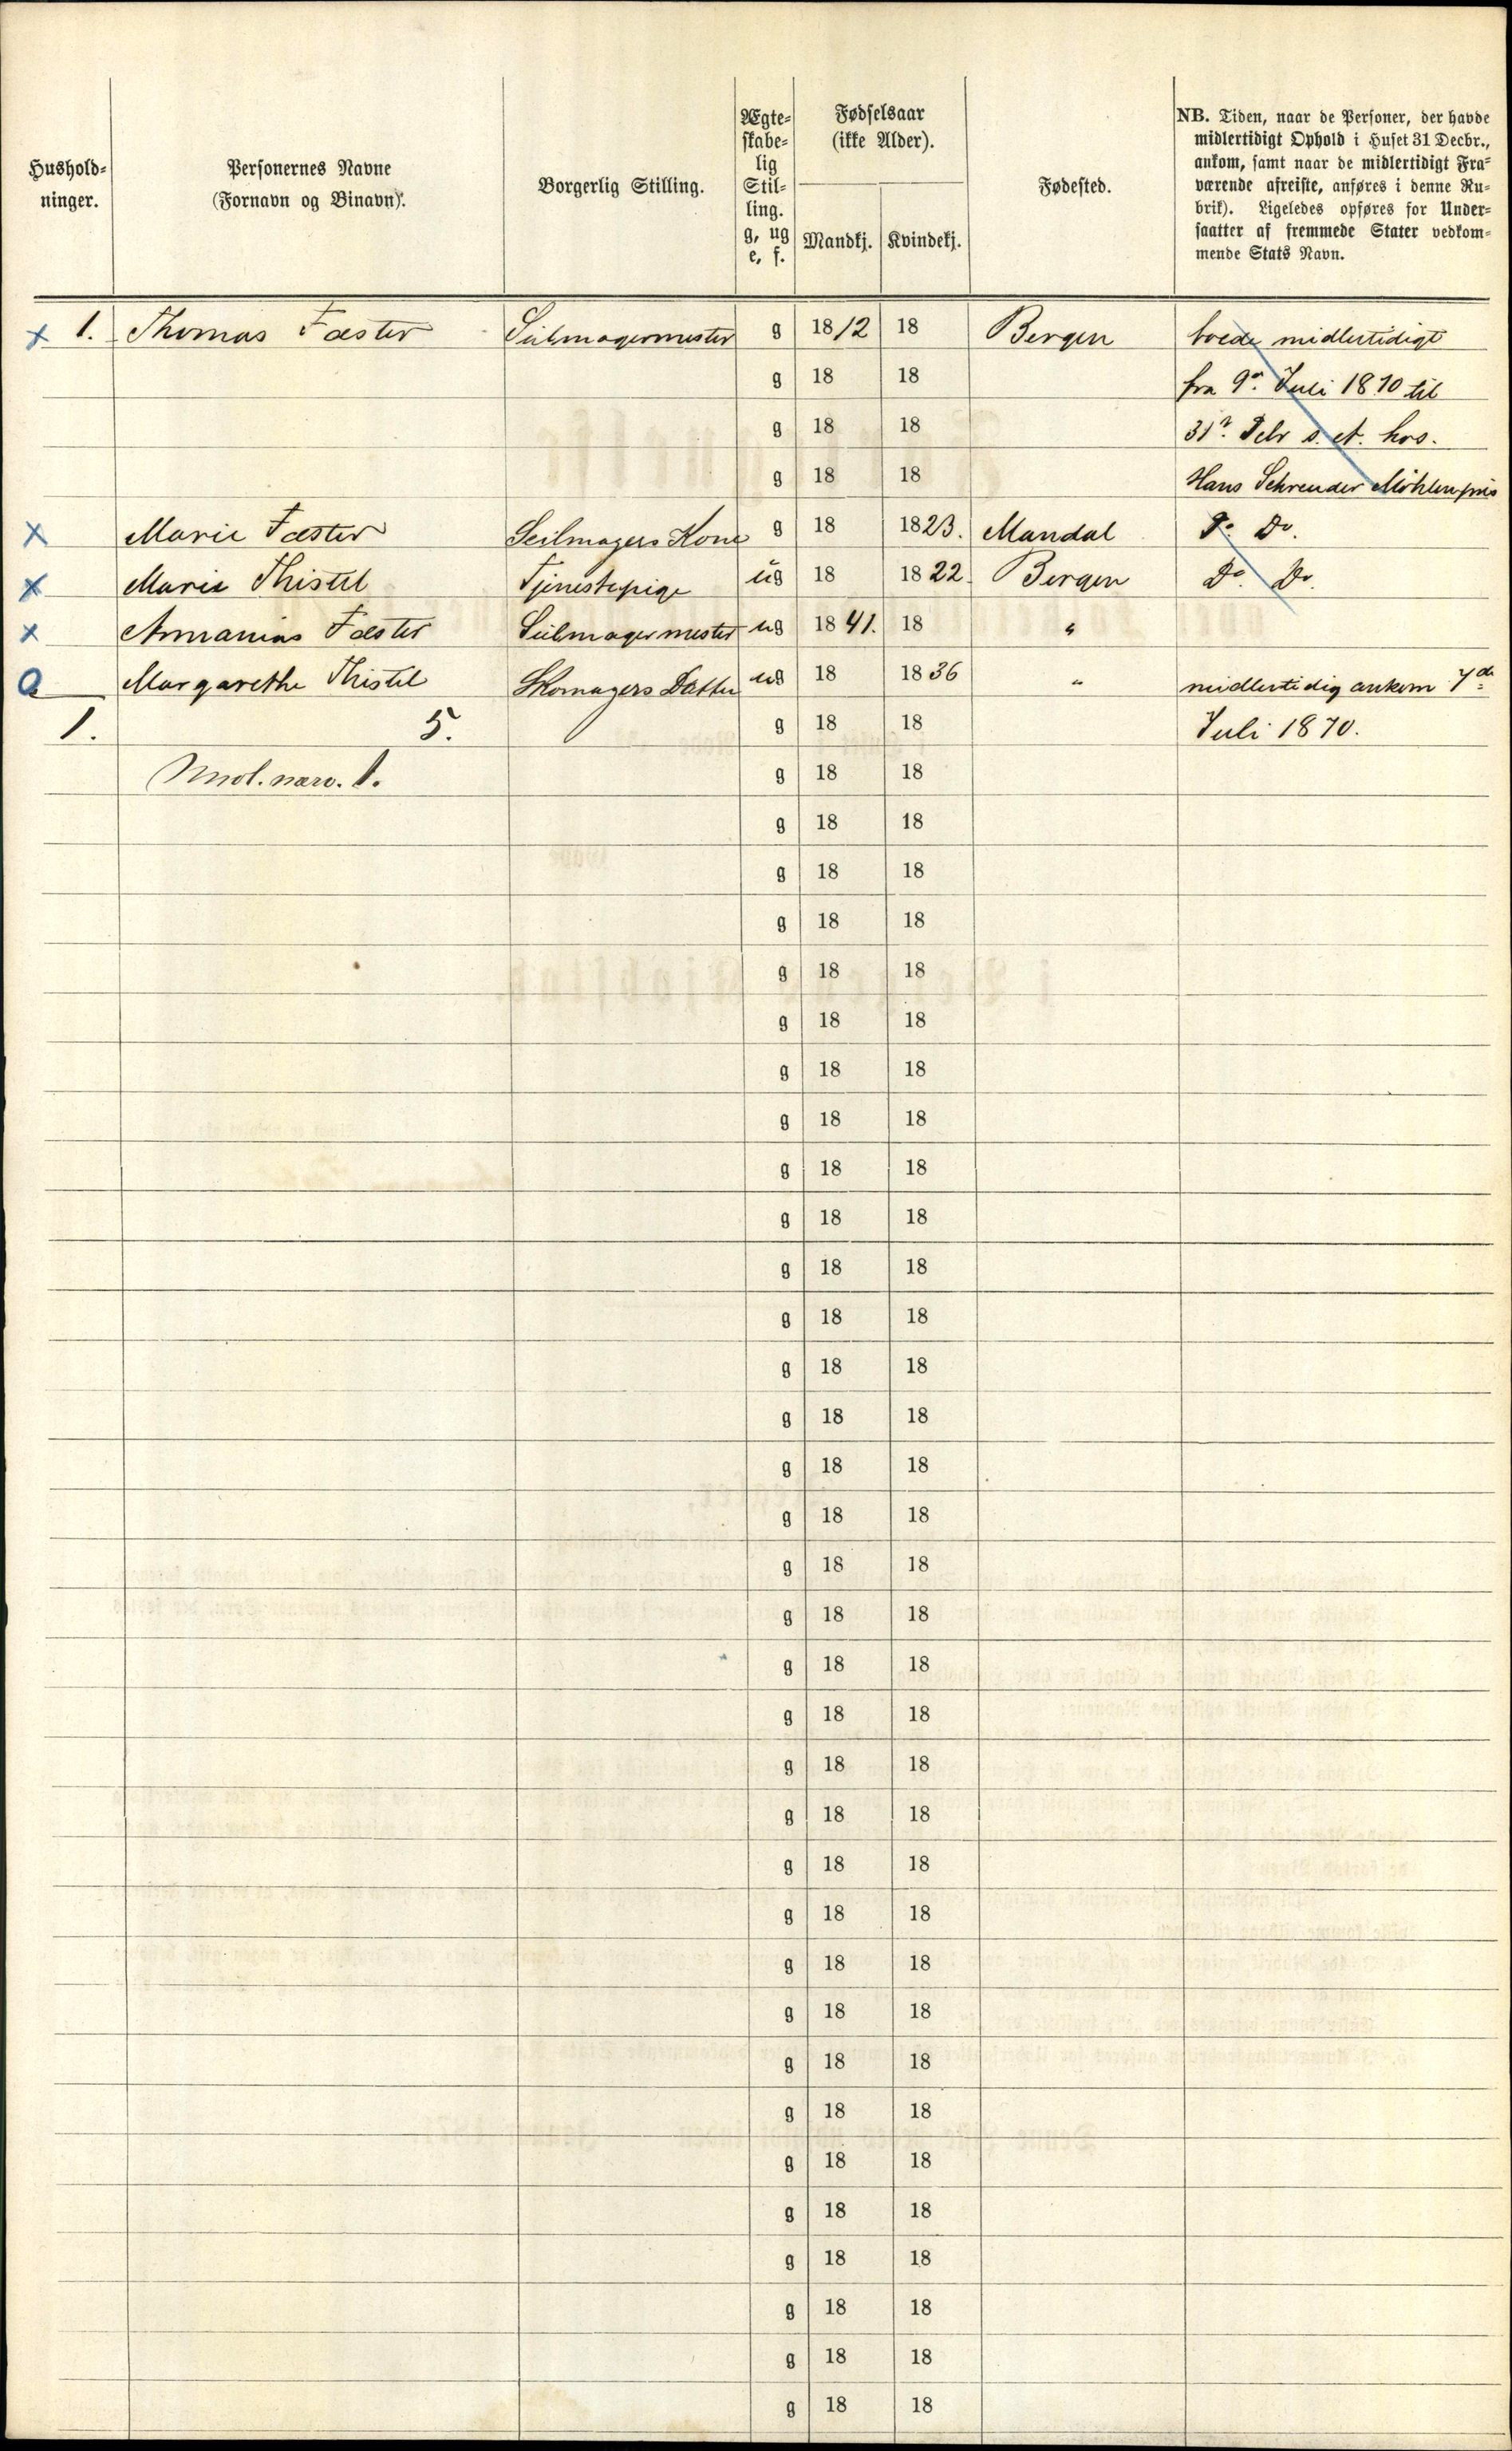 Hushold-
ninger.
Personernes Navne
(Fornavn og Binavn).
Borgerlig Stilling.
Ægte-
skabe-
lig
Stil-
ling.
g, ug
e, f.
Fødselsaar
(ikke Alder).
Mandkj. Kvindekj.
Fødested.
NB. Tiden, naar de Personer, der havde
midlertidigt Ophold i Huset 31 Decbr.,
ankom, samt naar de midlertidigt Fra-
værende afreiste, anføres i denne Ru-
brik). Ligeledes opføres for Under-
saatter af fremmede Stater vedkom-
mende Stats Navn.
x 1. Thomas Fæster Seilmagermester g 1812 18 Bergen boede midlertidigt
g 18 18 fra 9de Juli 1870 til
g 18 18 31te s. A. hos.
g 18 18 Hans Schreuder Möhlenpris
x Marie Fæster Seilmagers Kone g 18 1823. Mandal Do Do.
x Marie Thistel Tjenestepige ug 18 1822. Bergen Do. Do.
x Annanias Fæster Seilmagermester ug 1841. 18 "
O Margarethe Thistel Skomagers Datter ug 18 1836 " midlertidig ankom 7de
1. 5. g 18 18 Juli 1870.
Mdl. nærv. 1. g 18 18
g 18 18
g 18 18
g 18 18
g 18 18
g 18 18
g 18 18
g 18 18
g 18 18
g 18 18
g 18 18
g 18 18
g 18 18
g 18 18
g 18 18
g 18 18
g 18 18
g 18 18
g 18 18
g 18 18
g 18 18
g 18 18
g 18 18
g 18 18
g 18 18
g 18 18
g 18 18
g 18 18
g 18 18
g 18 18
g 18 18
g 18 18
g 18 18
g 18 18